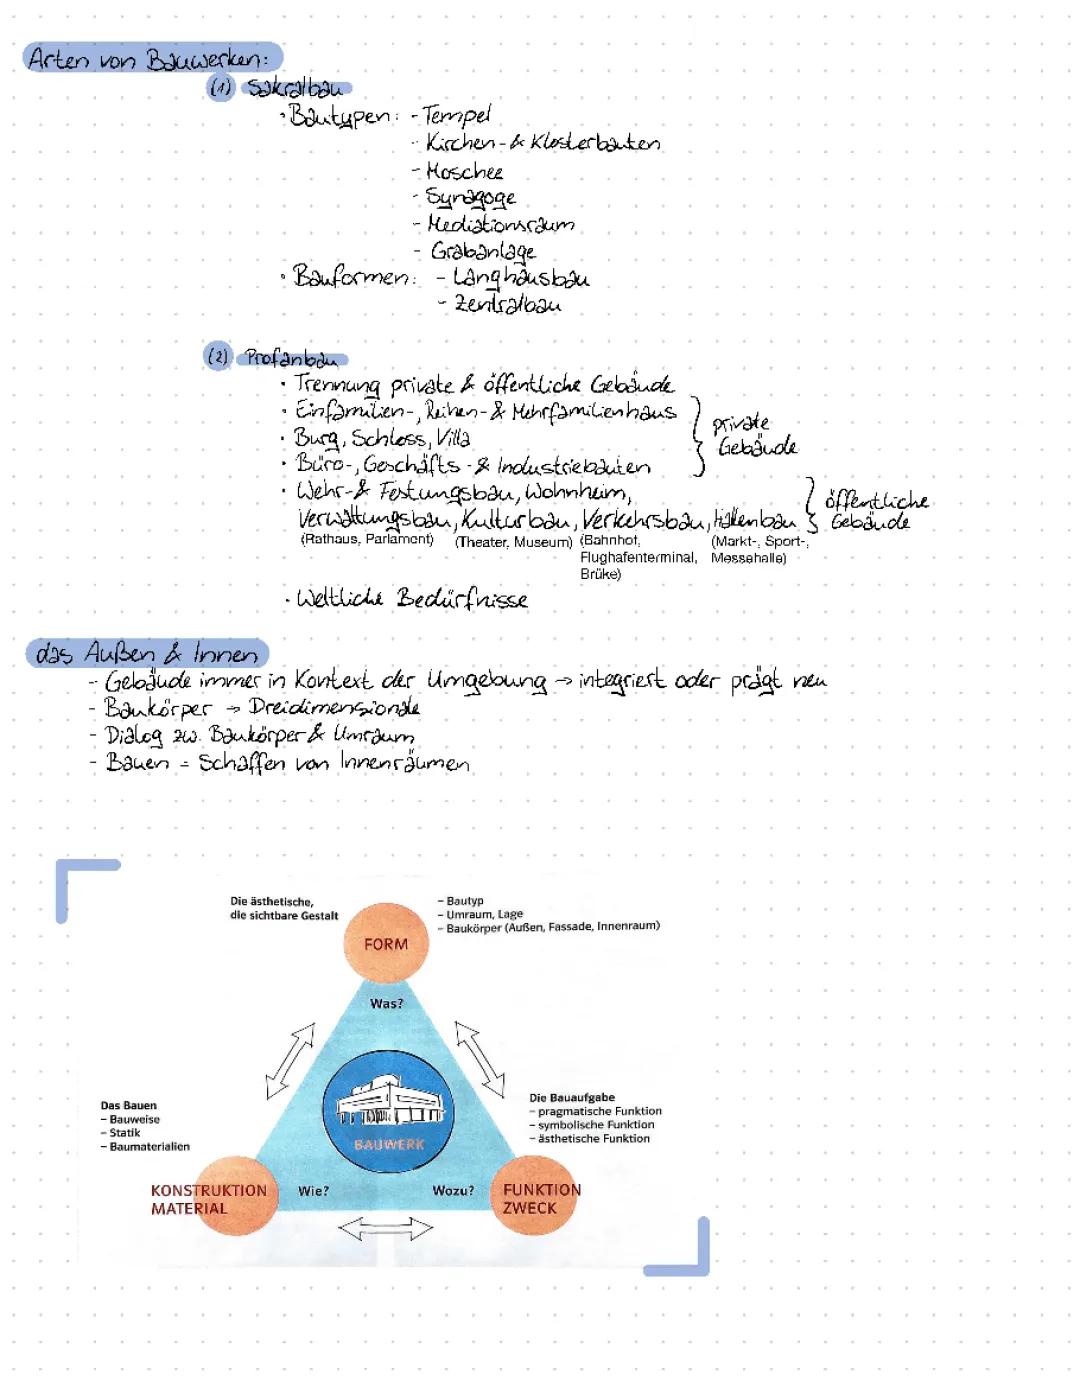 Arten von Bauwerken:
(1) Sakralbau
• Bautypen: - Tempel
- Kirchen- & Klosterbauten
- Moschee
- Synagoge
- Mediationsraum
- Grabanlage
• Bauformen: - Langhausbau
- Zentralbau
(2) Profanbau
• Trennung private & öffentliche Gebäude
• Einfamilien-, Reihen- & Mehrfamilienhaus
• Burg, Schloss, Villa
• Büro-, Geschäfts- & Industriebauten
private
Gebäude
• Wehr- & Festungsbau, Wohnheim,
Verwaltungsbau, Kulturbau, Verkehrsbau, Hallenbau
öffentliche
Gebäude
(Rathaus, Parlament) (Theater, Museum) (Bahnhof, (Markt-, Sport-,
Flughafenterminal, Messehalle)
Brüke)
• Weltliche Bedürfnisse
das Außen & Innen
- Gebäude immer in Kontext der Umgebung → integriert oder prägt neu
- Baukörper → Dreidimensionale
- Dialog zw. Baukörper & Umraum
- Bauen = Schaffen von Innenräumen
Die ästhetische,
die sichtbare Gestalt
- Bautyp
- Umraum, Lage
- Baukörper (Außen, Fassade, Innenraum)
FORM
Was?
BAUWERK
Das Bauen
- Bauweise
- Statik
- Baumaterialien
Die Bauaufgabe
- pragmatische Funktion
- symbolische Funktion
- ästhetische Funktion
KONSTRUKTION
MATERIAL
Wie?
Wozu?
FUNKTION
ZWECK